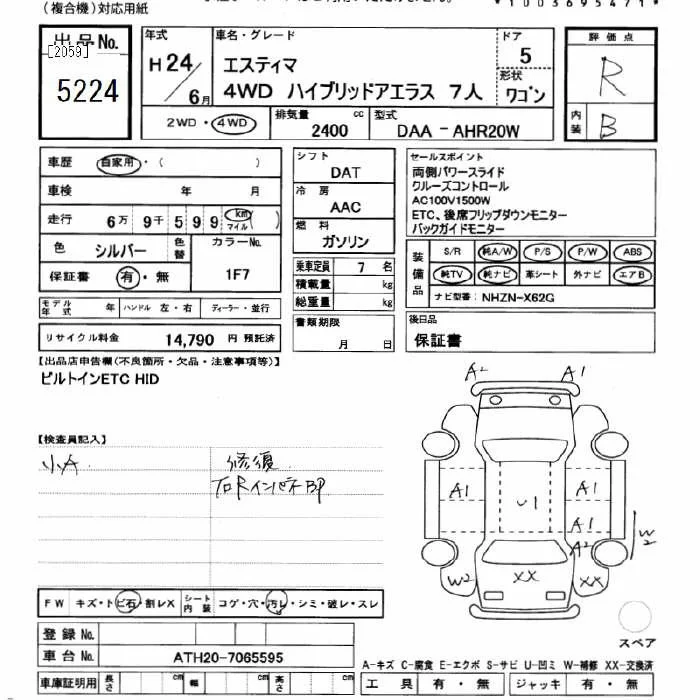 (複合機)対応用紙
*1003695471*
出品No.
[2059]
5224
年式
H24/6月
車名・グレード
エスティマ
4WD ハイブリッドアエラス 7人
ドア
5
形状
ワゴン
評価点
R
内装
B
2WD・4WD
排気量
2400 cc
型式
DAA-AHR20W
車歴 自家用・( )
車検 年 月
走行 6万 9千 599 km マイル ( )
色 シルバー
色替
カラーNo.
1F7
保証書 有・無
シフト
DAT
冷房
AAC
燃料
ガソリン
乗車定員 7 名
積載量 kg
総重量 kg
書類期限
月 日
セールスポイント
両側パワースライド
クルーズコントロール
AC100V1500W
ETC、後席フリップダウンモニター
バックガイドモニター
装備品
S/R 純A/W P/S P/W ABS
純TV 純ナビ 革シート 外ナビ エアB
ナビ型番: NHZN-X62G
モデル年式 年 ハンドル 左・右 ディーラー・並行
リサイクル料金 14,790 円 預託済
後日品
保証書
【出品店申告欄(不良箇所・欠品・注意事項等)】
ビルトインETC HID
【検査員記入】
小A
修復
右Rインパネ凹
A2 A1
A1 U1 A1
A1
A2
W2
W2 XX XX
FW キズ・トビ石・割レX
シート内装 コゲ・穴・汚レ・シミ・破レ・スレ
登録No.
車台No. ATH20-7065595
車庫証明用 長さ cm 幅 cm 高さ cm
スペア
A-キズ C-腐食 E-エクボ S-サビ U-凹ミ W-補修 XX-交換済
工具 有・無 ジャッキ 有・無